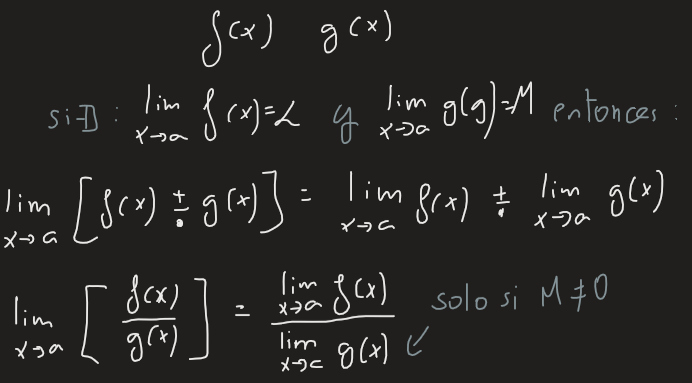 f(x) g(x)
si ∃ : lim x→a f(x)=L y lim x→a g(g)=M entonces :
lim x→a [f(x) ± . g(x)] = lim x→a f(x) ± . lim x→a g(x)
lim x→a [f(x)/g(x)] = lim x→a f(x) / lim x→a g(x) solo si M≠0